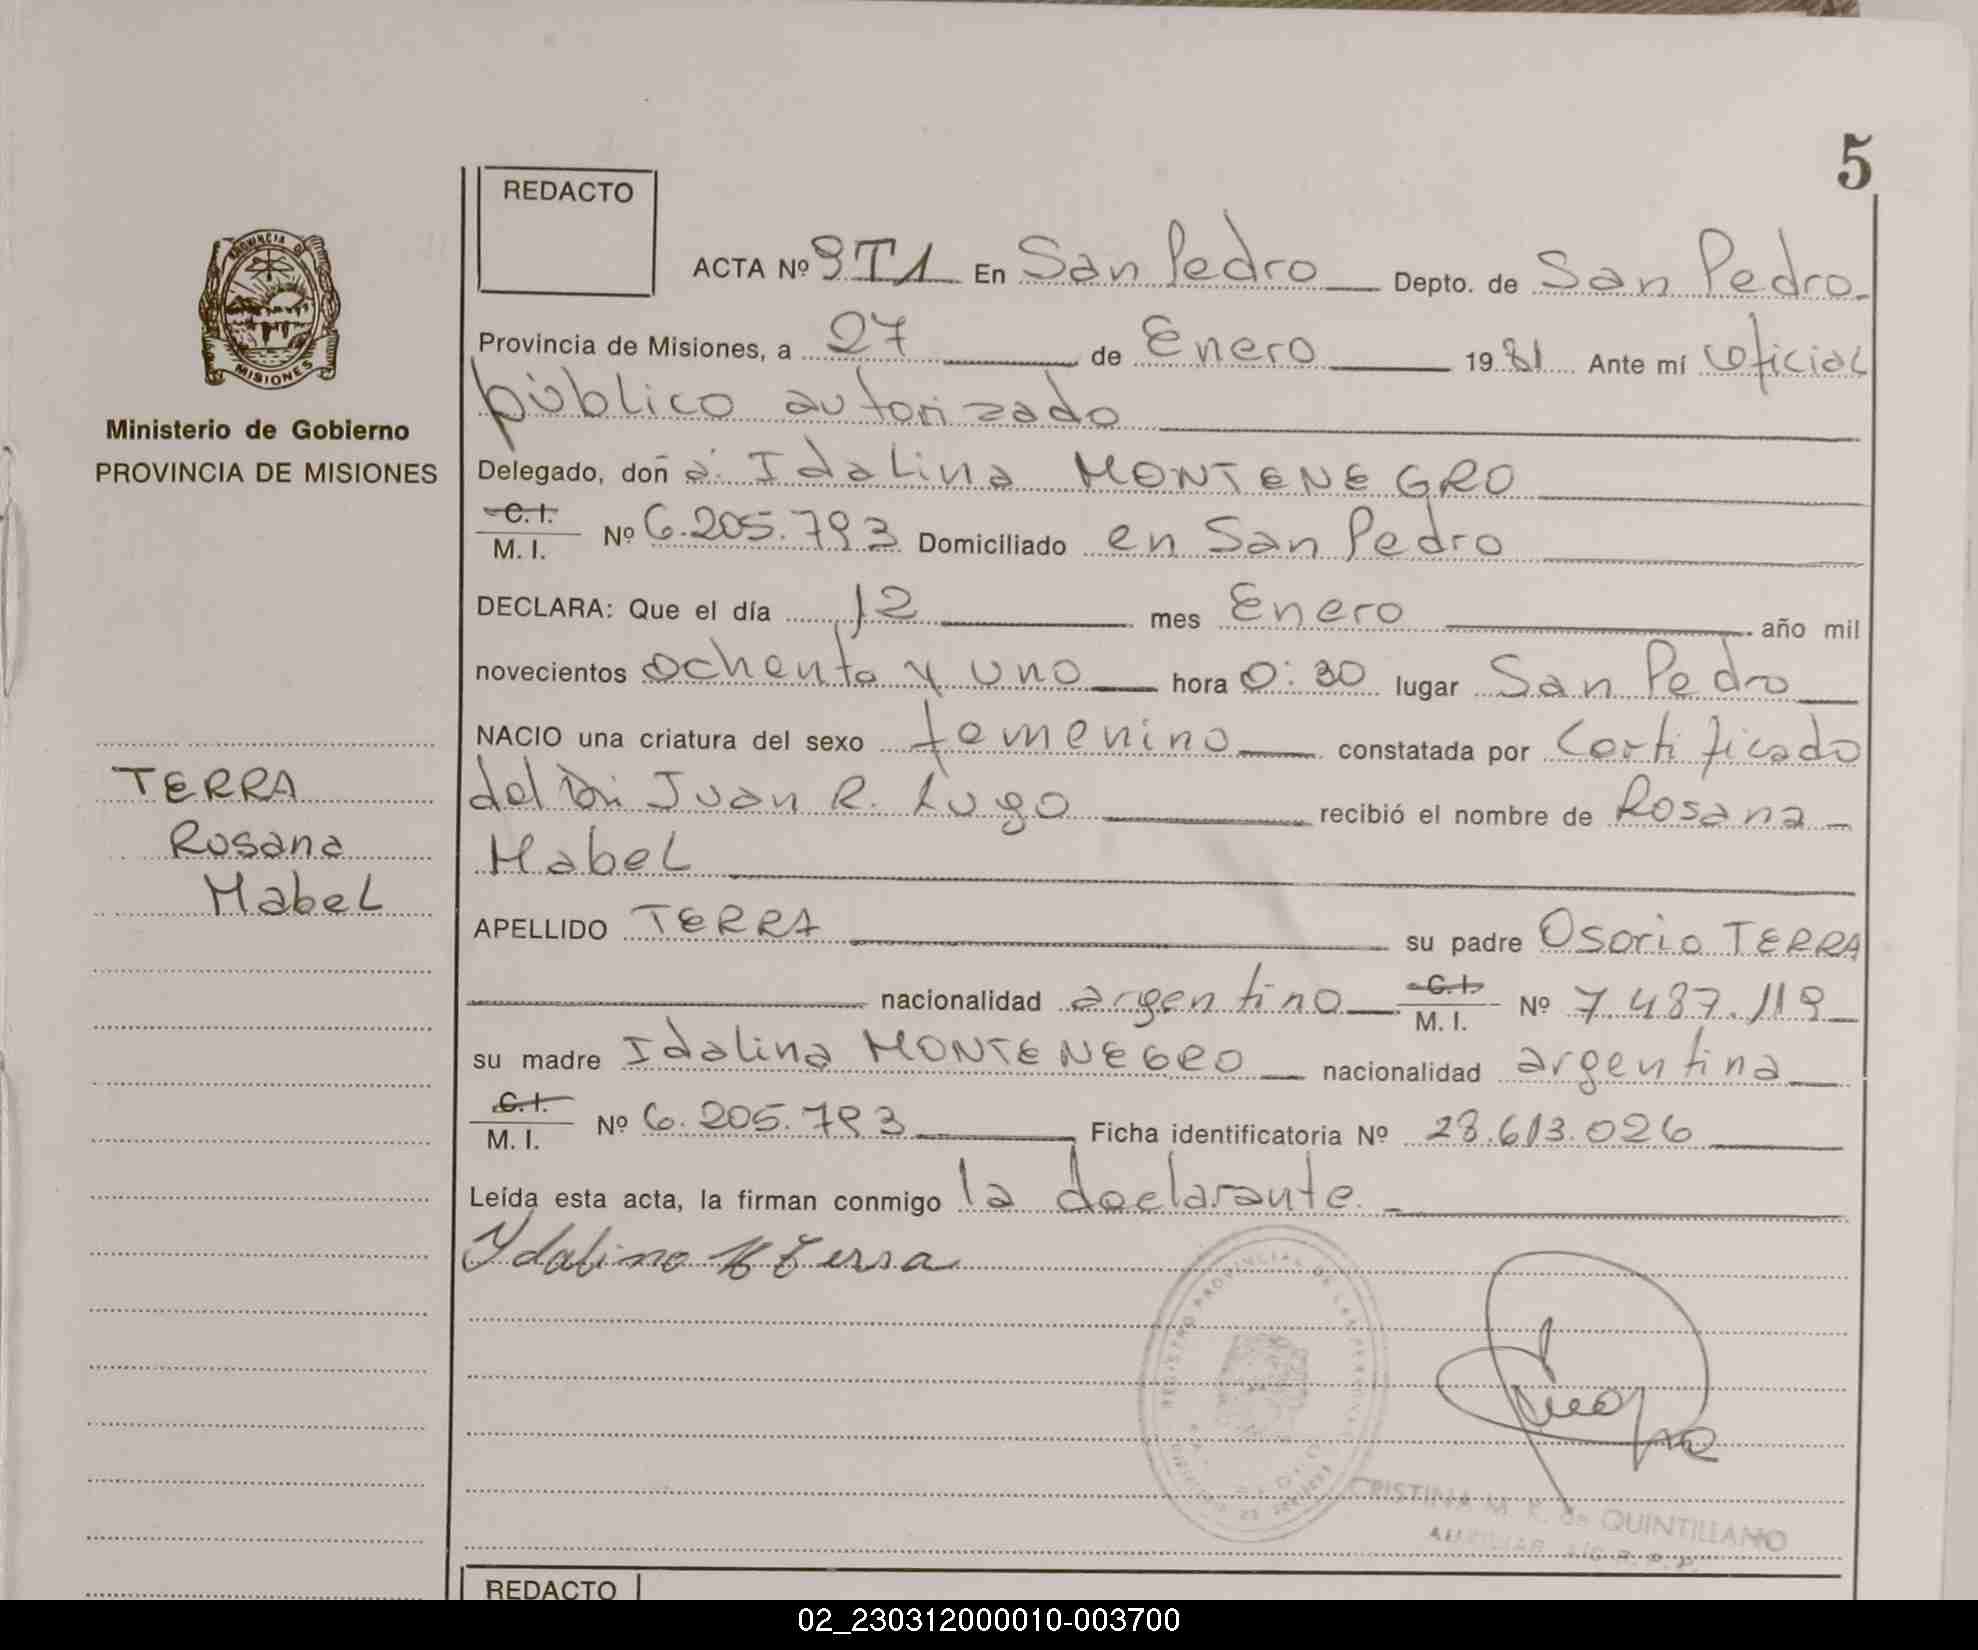 5
REDACTO
ACTA Nº 9T1 En San Pedro Depto. de San Pedro
Provincia de Misiones, a 27 de Enero 1981 Ante mí oficial
público autorizado
Delegado, doña Idalina MONTENEGRO
C. I.
M. I. Nº 6.205.793 Domiciliado en San Pedro
DECLARA: Que el día 12 mes Enero año mil
novecientos ochenta y uno hora 0:30 lugar San Pedro
NACIO una criatura del sexo femenino constatada por Certificado
del Dr. Juan R. Lugo recibió el nombre de Rosana
Mabel
APELLIDO TERRA su padre Osorio TERRA
nacionalidad argentino C. I.
M. I. Nº 7.487.119
su madre Idalina MONTENEGRO nacionalidad argentina
C. I.
M. I. Nº 6.205.793 Ficha identificatoria Nº 28.613.026
Leída esta acta, la firman conmigo la declarante.
Ydalina M terra
CRISTINA M. K. de QUINTILLANO
AUXILIAR
PROVINCIA DE
MISIONES
Ministerio de Gobierno
PROVINCIA DE MISIONES
TERRA
Rosana
Mabel
REGISTRO PROVINCIAL DE LAS PERSONAS
REDACTO
02_230312000010-003700